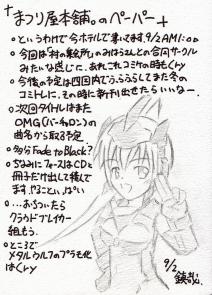 まつり屋本舗。のペーパー
というわけで今ホテルで書いてます9/2 AM1:00
今回は"村の絵所"のみはらさんとの合同サークル
みたいな感じに。あれこれコミケの時もくいY
今後の予定は四国内でうろうろしてまた冬の
コミトレに。その時に新刊出せたらいいなー。
次回タイトルはまた
OMG(バーチャロン)の
曲名から取る予定
多分Fade to Black?
ちなみにフォースはCDと
冊子だけ出して積んで
ます。やることいっぱい
…おちついたら
クラウドブレイカー
組もう。
ところで
メタルウルフのプラモ化
はくいY
9/2